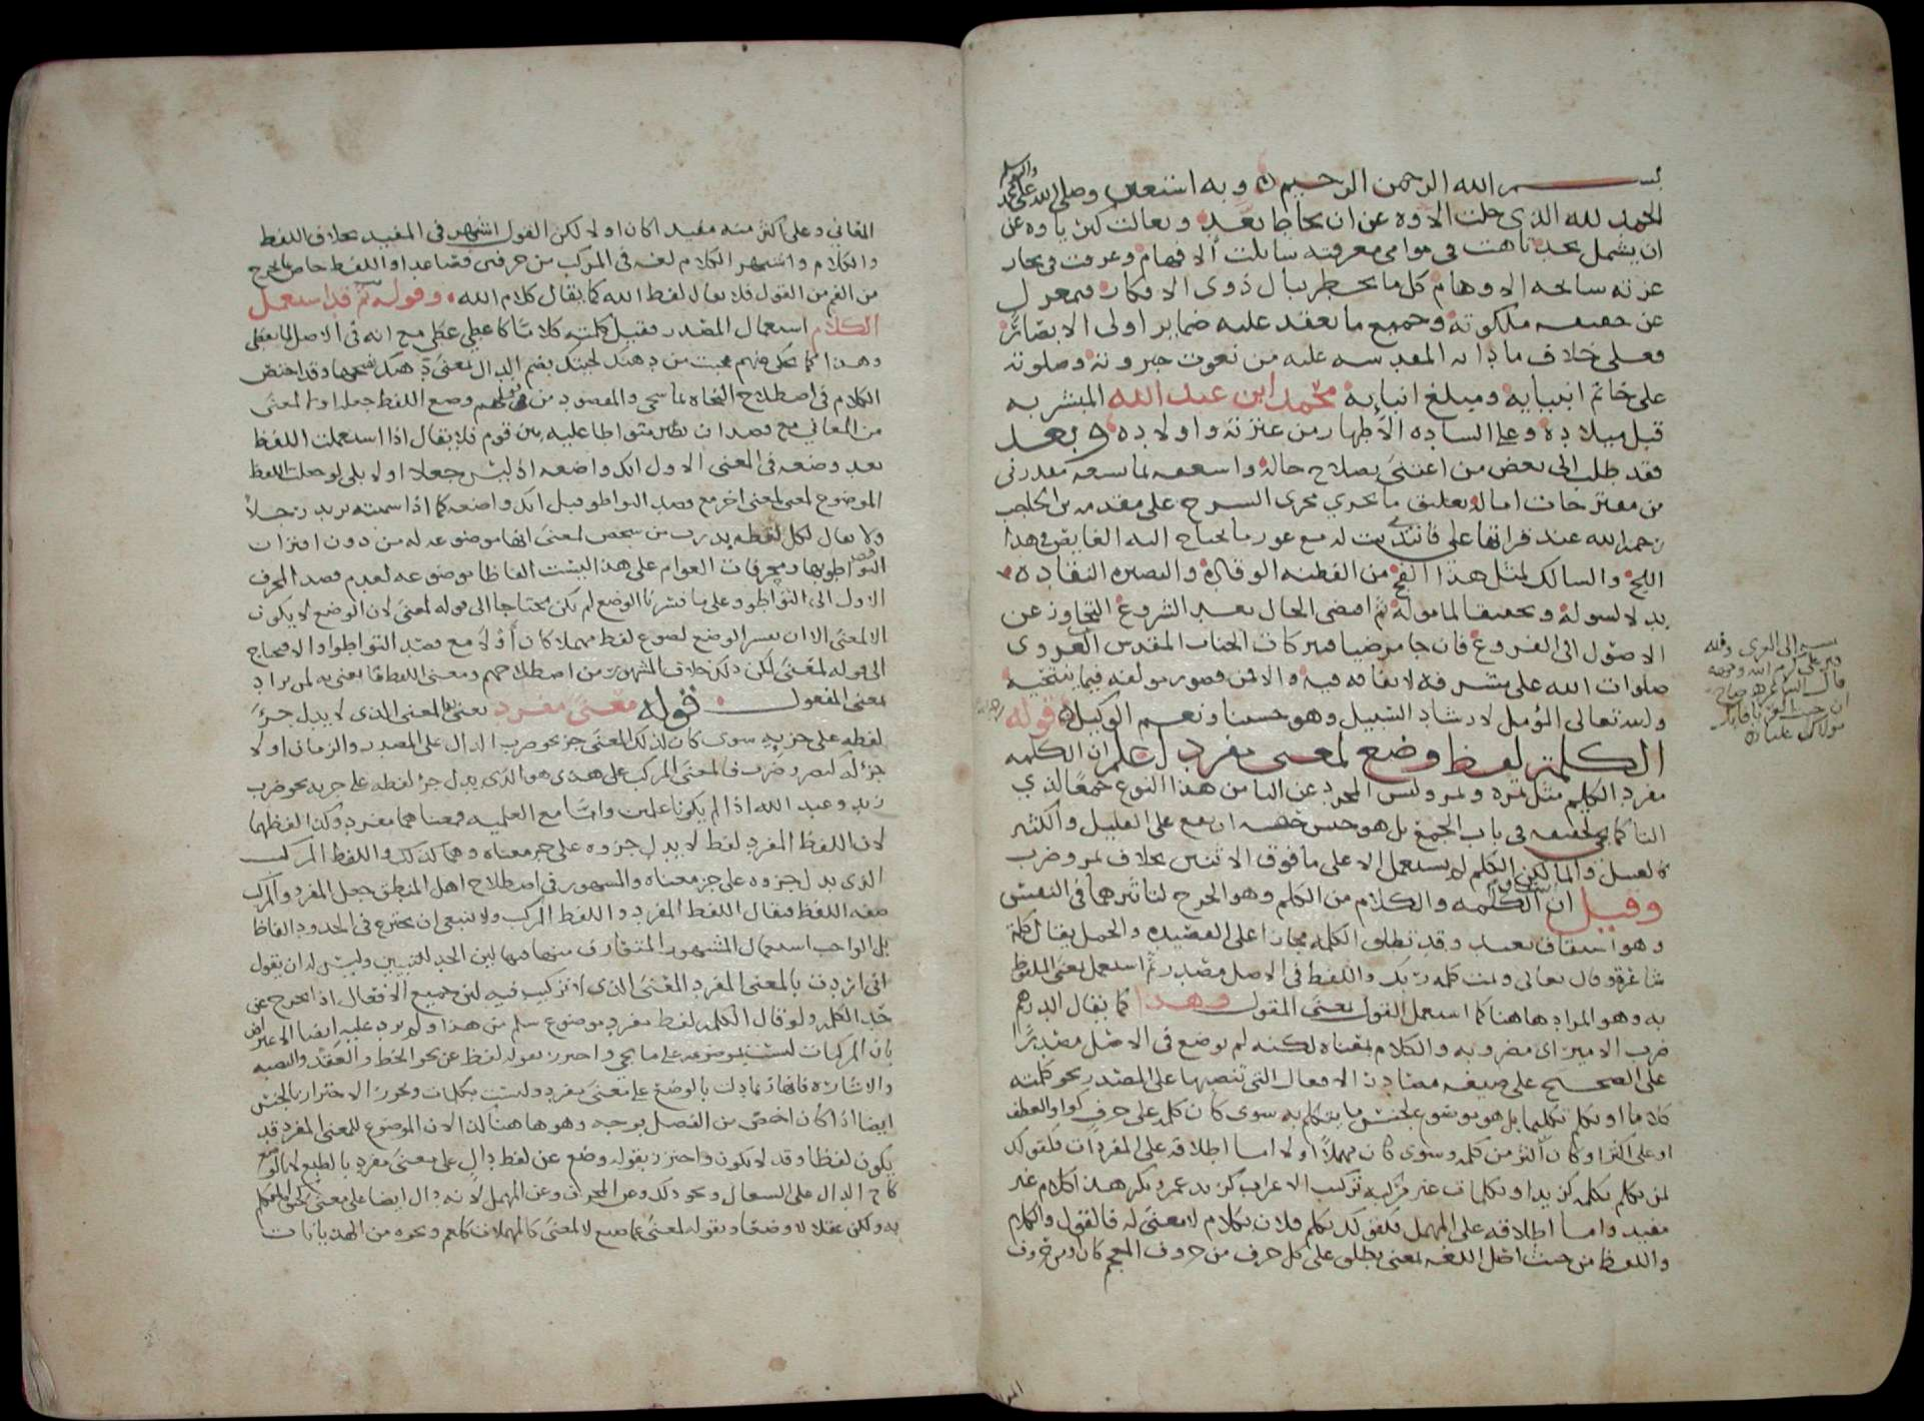 بسم الله الرحمن الرحيم وبه استعين وصلى الله على محمد واله وسلم
الحمد لله الذي جلت الاوه عن ان تحاط بعد وتعالت كبرياوه عن
ان يشمل بحد تاهت في موامي معرفته سابلت الافهام وغرقت في بحار
عزته سابحه الاوهام كل ما يخطر ببال ذوى الافكار فبمعزل
عن حقيقه ملكوته وجميع ما تعقد عليه ضماير اولى الابصار
فعلى خلاف ما ذاته المقدسه عليه من نعوت جبروته وصلوته
على خاتم انبيايه ومبلغ انبايه محمد ابن عبد الله المبشر به
قبل ميلاده وعلى الساده الاطهار من عترته واولاده وبعد
فقد طلب الى بعض من اعتنى بصلاح حاله واسعفه بما تسعه مقدرتى
من مقترحات اماله تعليق ما يجري مجرى الشرح على مقدمه بن الحاجب
رحمه الله عند قراتها علي فانتدبت له مع عوز ما يحتاج اليه الغايص في هذا
اللج والسالك لمثل هذا الفج من الفطنه الوقاده والبصيره النقاده
بذلا لسوله وتحقيقا لماموله ثم اقتضى الحال بعد الشروع التجاوز عن
الاصول الى الفروع فان جا مرضيا فببركات الجناب المقدس الغروى
صلوات الله على مشرفه لاتفاقه فيه والا فمن قصور مولفه فيما ينتحيه
والله تعالى المؤمل لارشاد السبيل وهو حسبنا ونعم الوكيل قوله
الكلمة لفظ وضع لمعنى مفرد اعلم ان الكلمه
مفرد الكلم مثل تمره وتمر وليس المجرد عن التا من هذا النوع جمعا لذي
التا كما يجى تحقيقه في باب الجمع بل هو جنس حقه ان يقع على القليل والكثير
كالعسل والما لكن الكلم لم يستعمل الا على ما فوق الاثنين بخلاف تمر وضرب
وقيل ان اشتقاق الكلمه والكلام من الكلم وهو الجرح لتاثيرهما في النفس
وهو اشتقاق بعيد وقد تطلق الكلمه مجازا على القصيده والجمل يقال كلمة
شاعر وقال تعالى وتمت كلمه ربك واللفظ في الاصل مصدر ثم استعمل بمعنى الملفوظ
به وهو المراد هاهنا كما استعمل القول بمعنى المقول وهذا كما يقال الدرهم
ضرب الامير اى مضروبه والكلام بمعناه لكنه لم يوضع في الاصل مصدرا
على الصحيح على صيغه مصادر الافعال التى تنصبها على المصدر نحو كلمته
كلاما او تكلم تكليما بل هو موضوع لجنس ما يتكلم به سوى كان كلمه على حرف كواو العطف
او على اكثر او كان اكثر من كلمه وسوى كان مهملا او لا اما اطلاقه على المفردات فكقولك
لمن تكلم بكلمه كزيد او بكلمات غير مركبه تركيب الاعراب كزيد عمرو بكر هذا كلام غير
مفيد واما اطلاقه على المهمل فكقولك تكلم فلان بكلام لا معنى له فالقول والكلام
واللفظ من حيث اصل اللغه بمعنى يطلق على كل حرف من حروف المعجم كان او من حروف
المعاني وعلى اكثر منه مفيدا كان او لا لكن القول اشتهر في المفيد بخلاف اللفظ
والكلام واشتهر الكلام لغه في المركب من حرفين فصاعدا واللفظ خاص بما يخرج
من الفم من القول فلا يقال لفظ الله كما يقال كلام الله وقوله ثم قد استعمل
الكلام استعمال المصدر فقيل كلمته كلاما كاعطي عطا مع انه في الاصل لما يعطى
وهذا كما يحكى عنهم عجبت من دهنك لحيتك بضم الدال بمعنى دهنك بفتحها وقد اختص
الكلام في اصطلاح النحاه بما سيجى والمقصود من قولهم وضع اللفظ جعله اولا لمعنى
من المعاني مع قصد ان يصير متواطا عليه بين قوم فلا يقال اذا استعملت اللفظ
بعد وضعه في المعنى الاول انك واضعه اذ ليس جعلا اولا بلى لو جعلت اللفظ
الموضوع لمعنى لمعنى اخر مع قصد التواطو قيل انك واضعه كما اذا سميت بزيد رجلا
ولا يقال لكل لفظه بدرت من شخص لمعنى انها موضوعه له من دون اقتران
قصد التواطو بها ومحرفات العوام على هذا ليست الفاظا موضوعه لعدم قصد المحرف
الاول الى التواطو وعلى ما فسرنا الوضع لم يكن محتاجا الى قوله لمعنى لان الوضع لا يكون
الا لمعنى الا ان يفسر الوضع بصوغ لفظ مهملا كان او لا مع قصد التواطو او لا فيحتاج
الى قوله لمعنى لكن ذلك خلاف المشهور من اصطلاحهم ومعنى اللفظ ما يعنى به اي يراد
بمعنى المفعول قوله معنى مفرد يعنى به المعنى الذى لا يدل جزؤ
لفظه على جزيه سوى كان لذلك المعنى جز نحو ضرب الدال على المصدر والزمان او لا
جزء له كنصر وضرب فالمعنى المركب على هذا هو الذى يدل جزء لفظه على جزيه نحو ضرب
زيد وعبد الله اذا لم يكونا علمين واما مع العلميه فمعناهما مفرد وكذا لفظهما
لان اللفظ المفرد لفظ لا يدل جزوه على جز معناه وهما كذلك واللفظ المركب
الذى يدل جزوه على جز معناه والمشهور في اصطلاح اهل المنطق جعل المفرد والمركب
صفه اللفظ فيقال اللفظ المفرد واللفظ المركب ولا ينبغى ان يخترع في الحدود الفاظا
بل الواجب استعمال المشهور المتعارف منها فيها لان الحد للتبيين وليس له ان يقول
انى اردت بالمعنى المفرد المعنى الذى لا تركيب فيه لان جميع الافعال اذا تخرج عن
حد الكلمه ولو قال الكلمه لفظ مفرد موضوع سلم من هذا ولم يرد عليه ايضا الاعتراض
بان المركبات ليست موضوعه على ما يجى واحترز بقوله لفظ عن نحو الخط والعقد والنصبه
والاشاره فانها ربما دلت بالوضع على معنى مفرد وليست بكلمات ويجوز الاحتراز بالجنس
ايضا اذا كان اخص من الفصل بوجه وهو هاهنا كذا لان الموضوع للمعنى المفرد قد
يكون لفظا وقد لا يكون واحترز بقوله وضع عن لفظ دال على معنى مفرد بالطبع لا بالوضع
كاح الدال على السعال ونحو ذلك وعن المحرف وعن المهمل لانه دال ايضا على معنى كحيوة المتكلم
به ولكن عقلا لا وضعا وبقوله لمعنى عما صيغ لا لمعنى كالمهملات كلعم ونحوه من الهذيانات